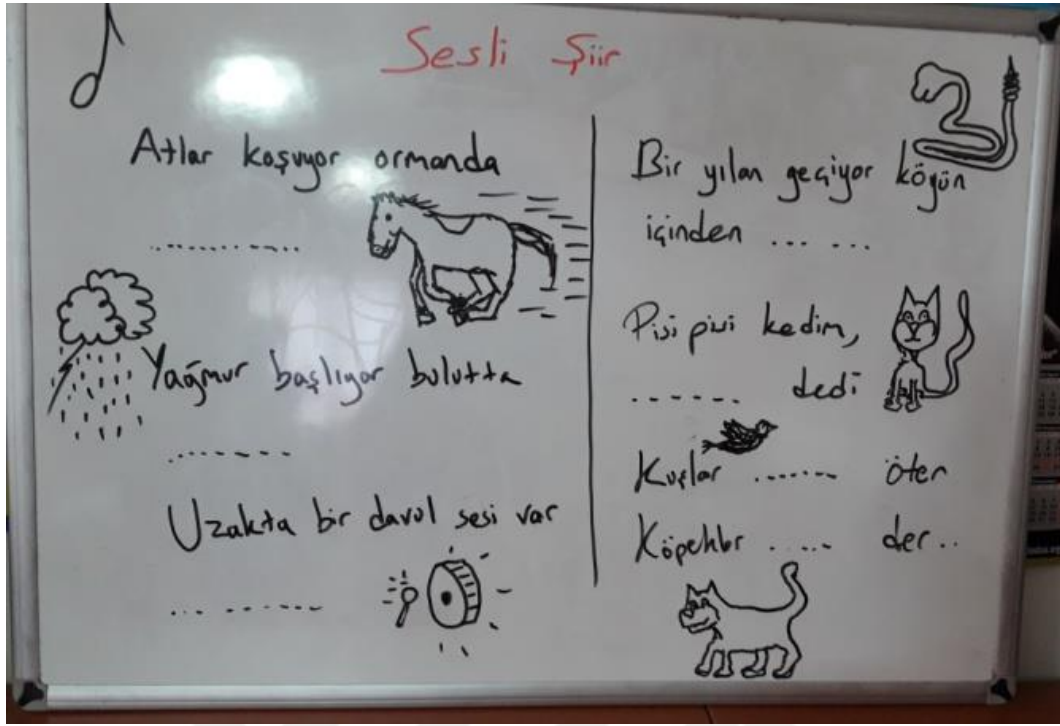 Sesli Şiir
Atlar koşuyor ormanda
..............
Yağmur başlıyor bulutta
............
Uzakta bir davul sesi var
... ........
Bir yılan geçiyor köyün
içinden ... ...
Pisi pisi kedim,
....... dedi
Kuşlar ....... öter
Köpekler ..... der..